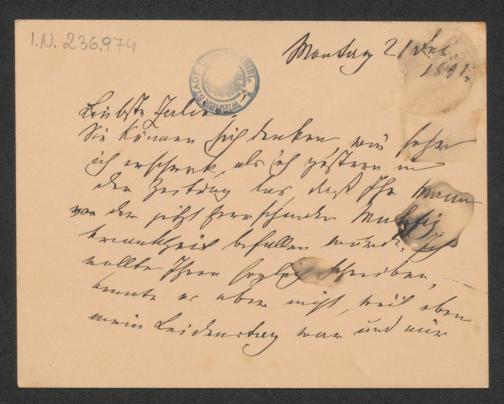 I.N. 236.974
Montag 21
Liebste
Sie können sich denken, wie sehr
ich erschrak, als ich gestern in
der Zeitung las daß Ihr Mann
von der jetzt herrschenden
krankheit befallen wurde. Ich
wollte Ihnen sogleich schreiben,
konnte es aber nicht, weil eben
mein Leidenstag war und mir